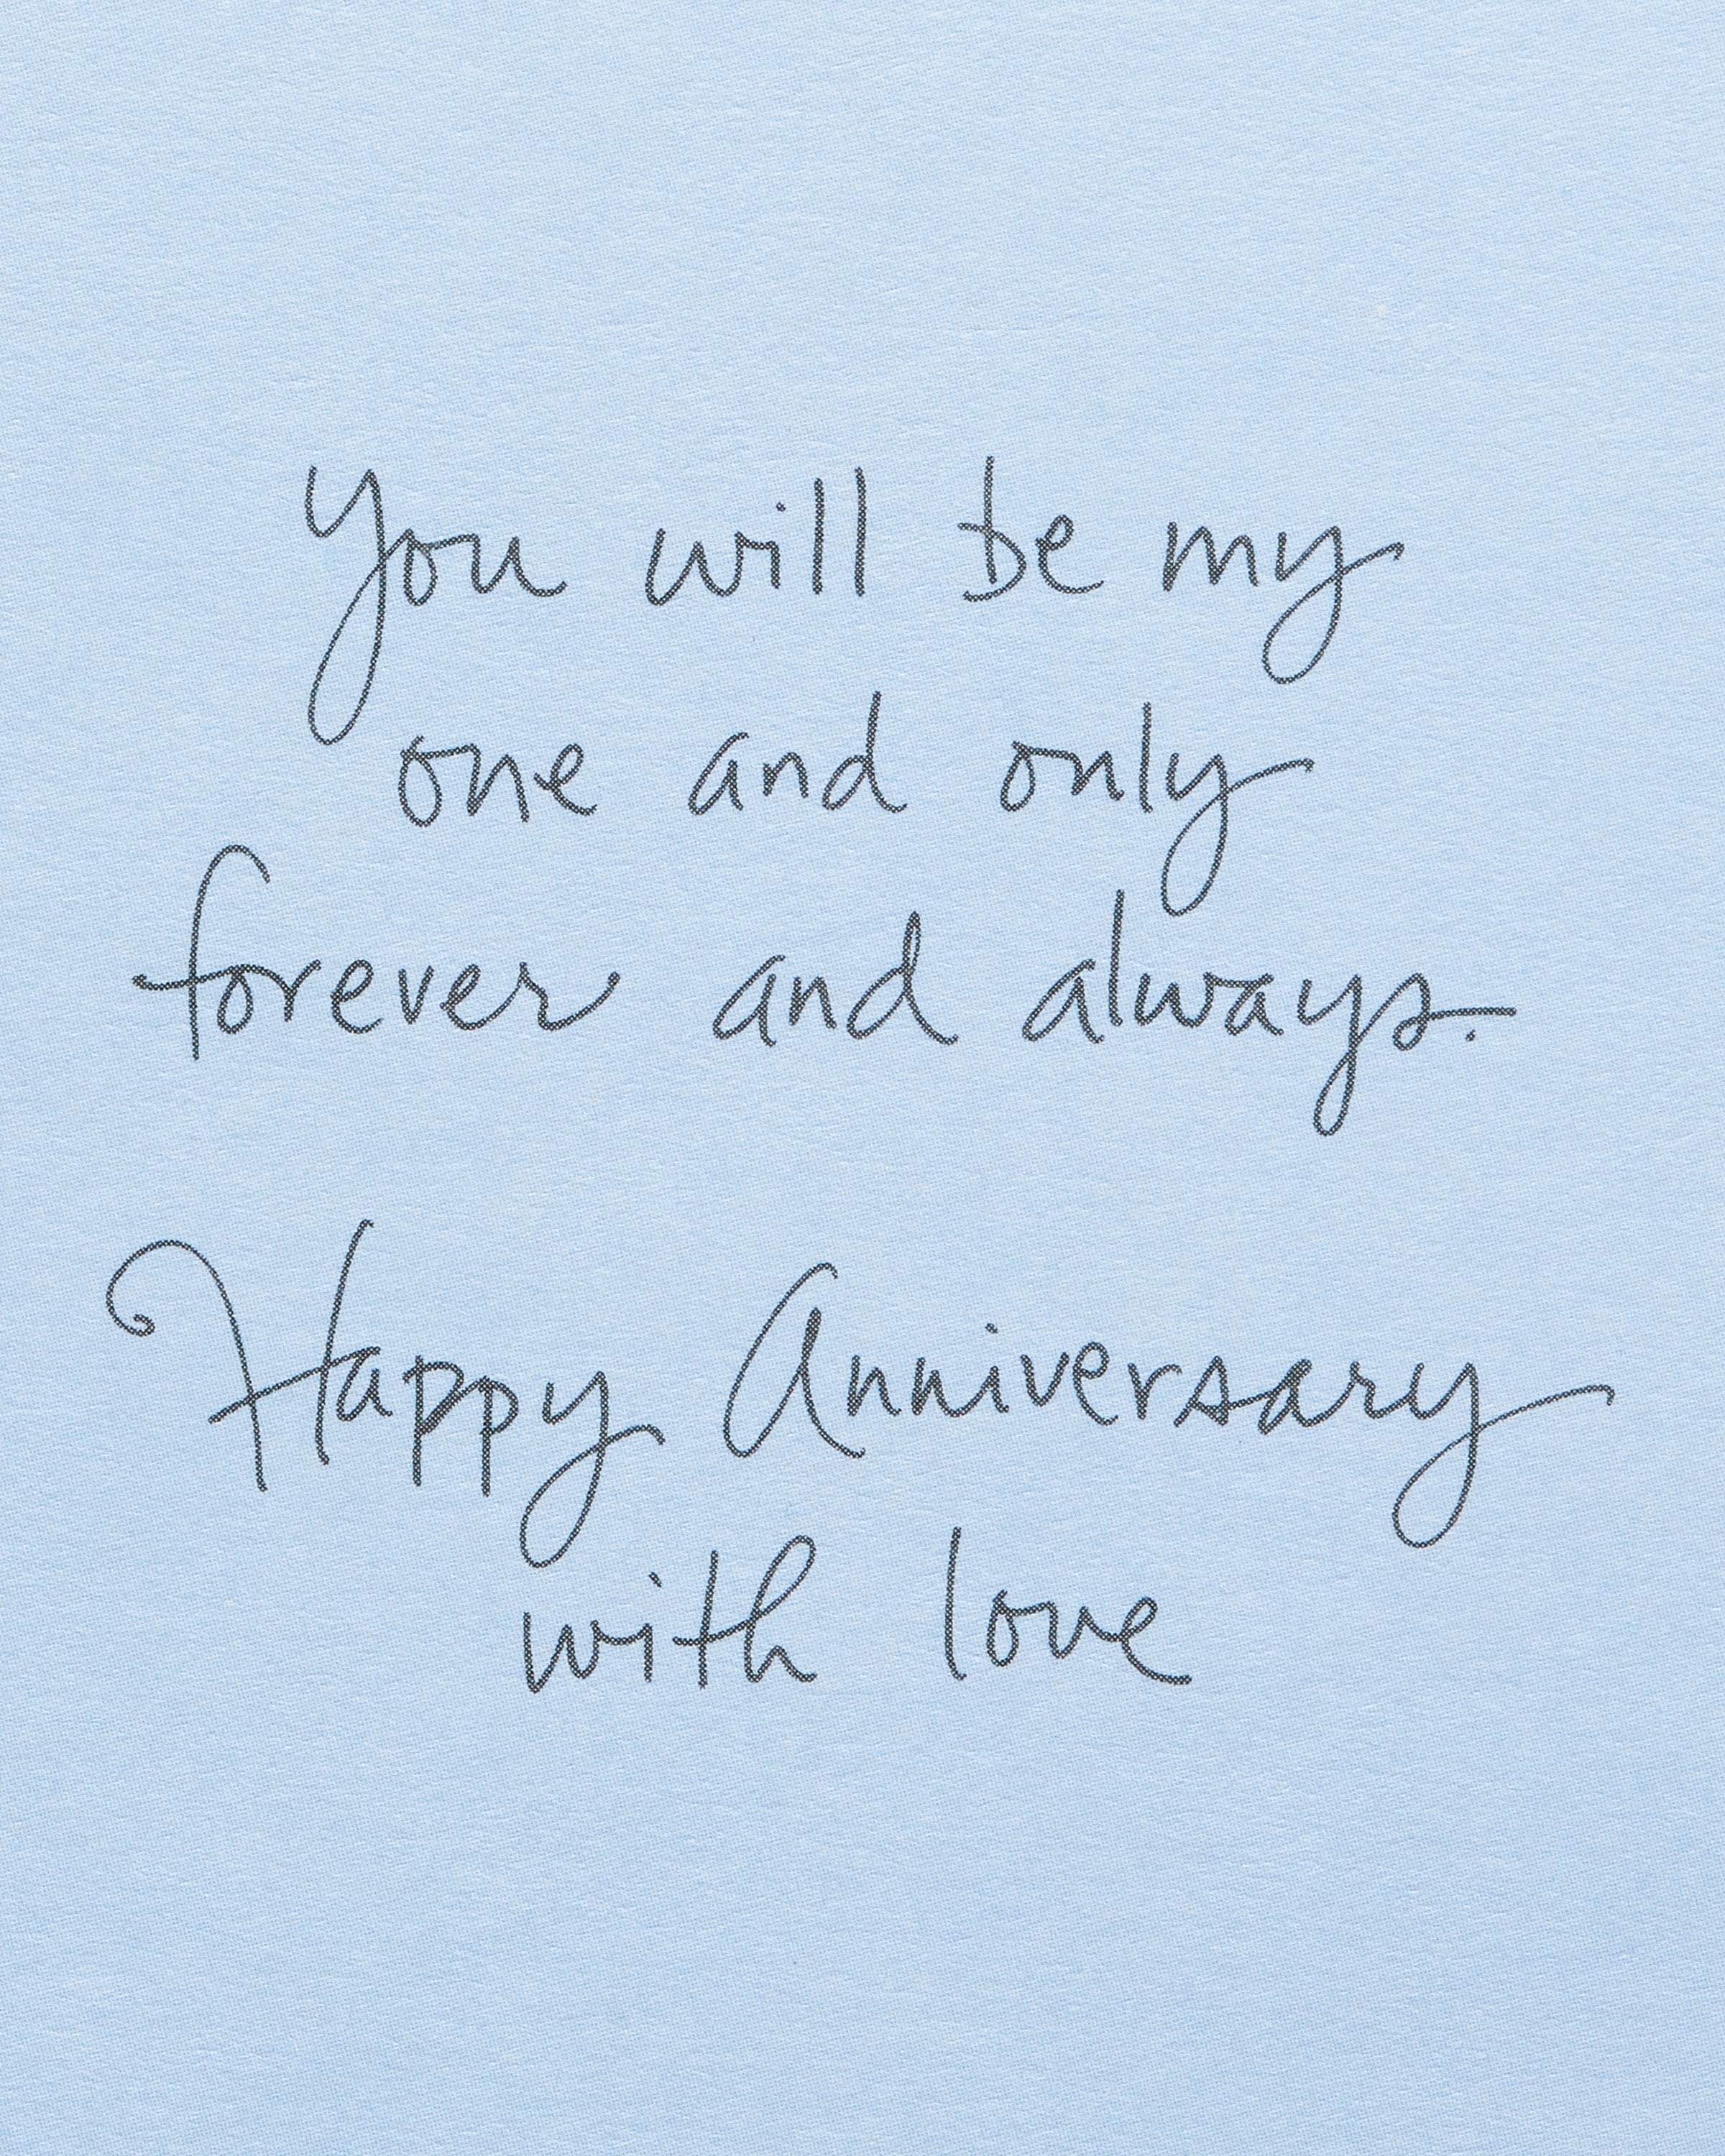 You will be my
one and only
forever and always.
Happy Anniversary
with love